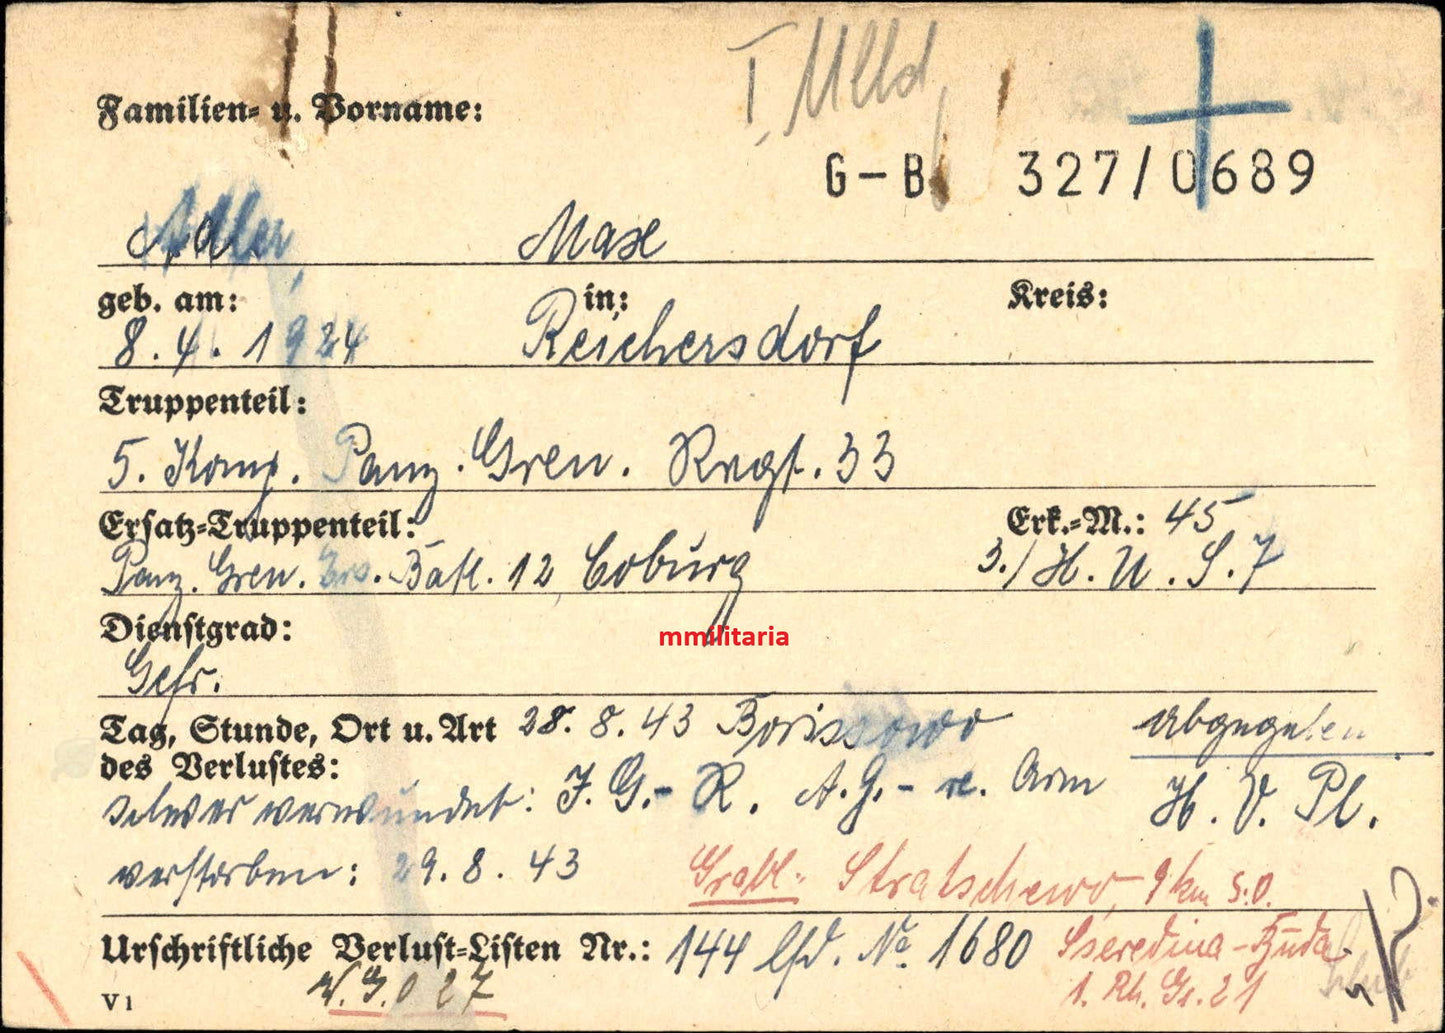 I. Mlld
Familien- u. Vorname:
G-B 327/0689
Adler, Max
geb. am: in: Kreis:
8.4.1924 Reichersdorf
Truppenteil:
5. Komp. Panz. Gren. Regt. 33
Ersatz-Truppenteil: Erk.-M.: 45
Panz. Gren. Ers. Batl. 12, Coburg 3./H.U.S.7
Dienstgrad:
mmilitaria
Gefr.
Tag, Stunde, Ort u. Art 28.8.43 Borissowo Abgegeben
des Verlustes:
schwer verwundet: J.G.-R. A.G.- re. Arm H.V.Pl.
verstorben: 29.8.43 Grabl: Stratschewo, 9 km S.O.
Urschriftliche Verlust-Listen Nr.: 144 lfd. No 1680 Sseredina-Buda
V1 1. Rh. Gr. 21